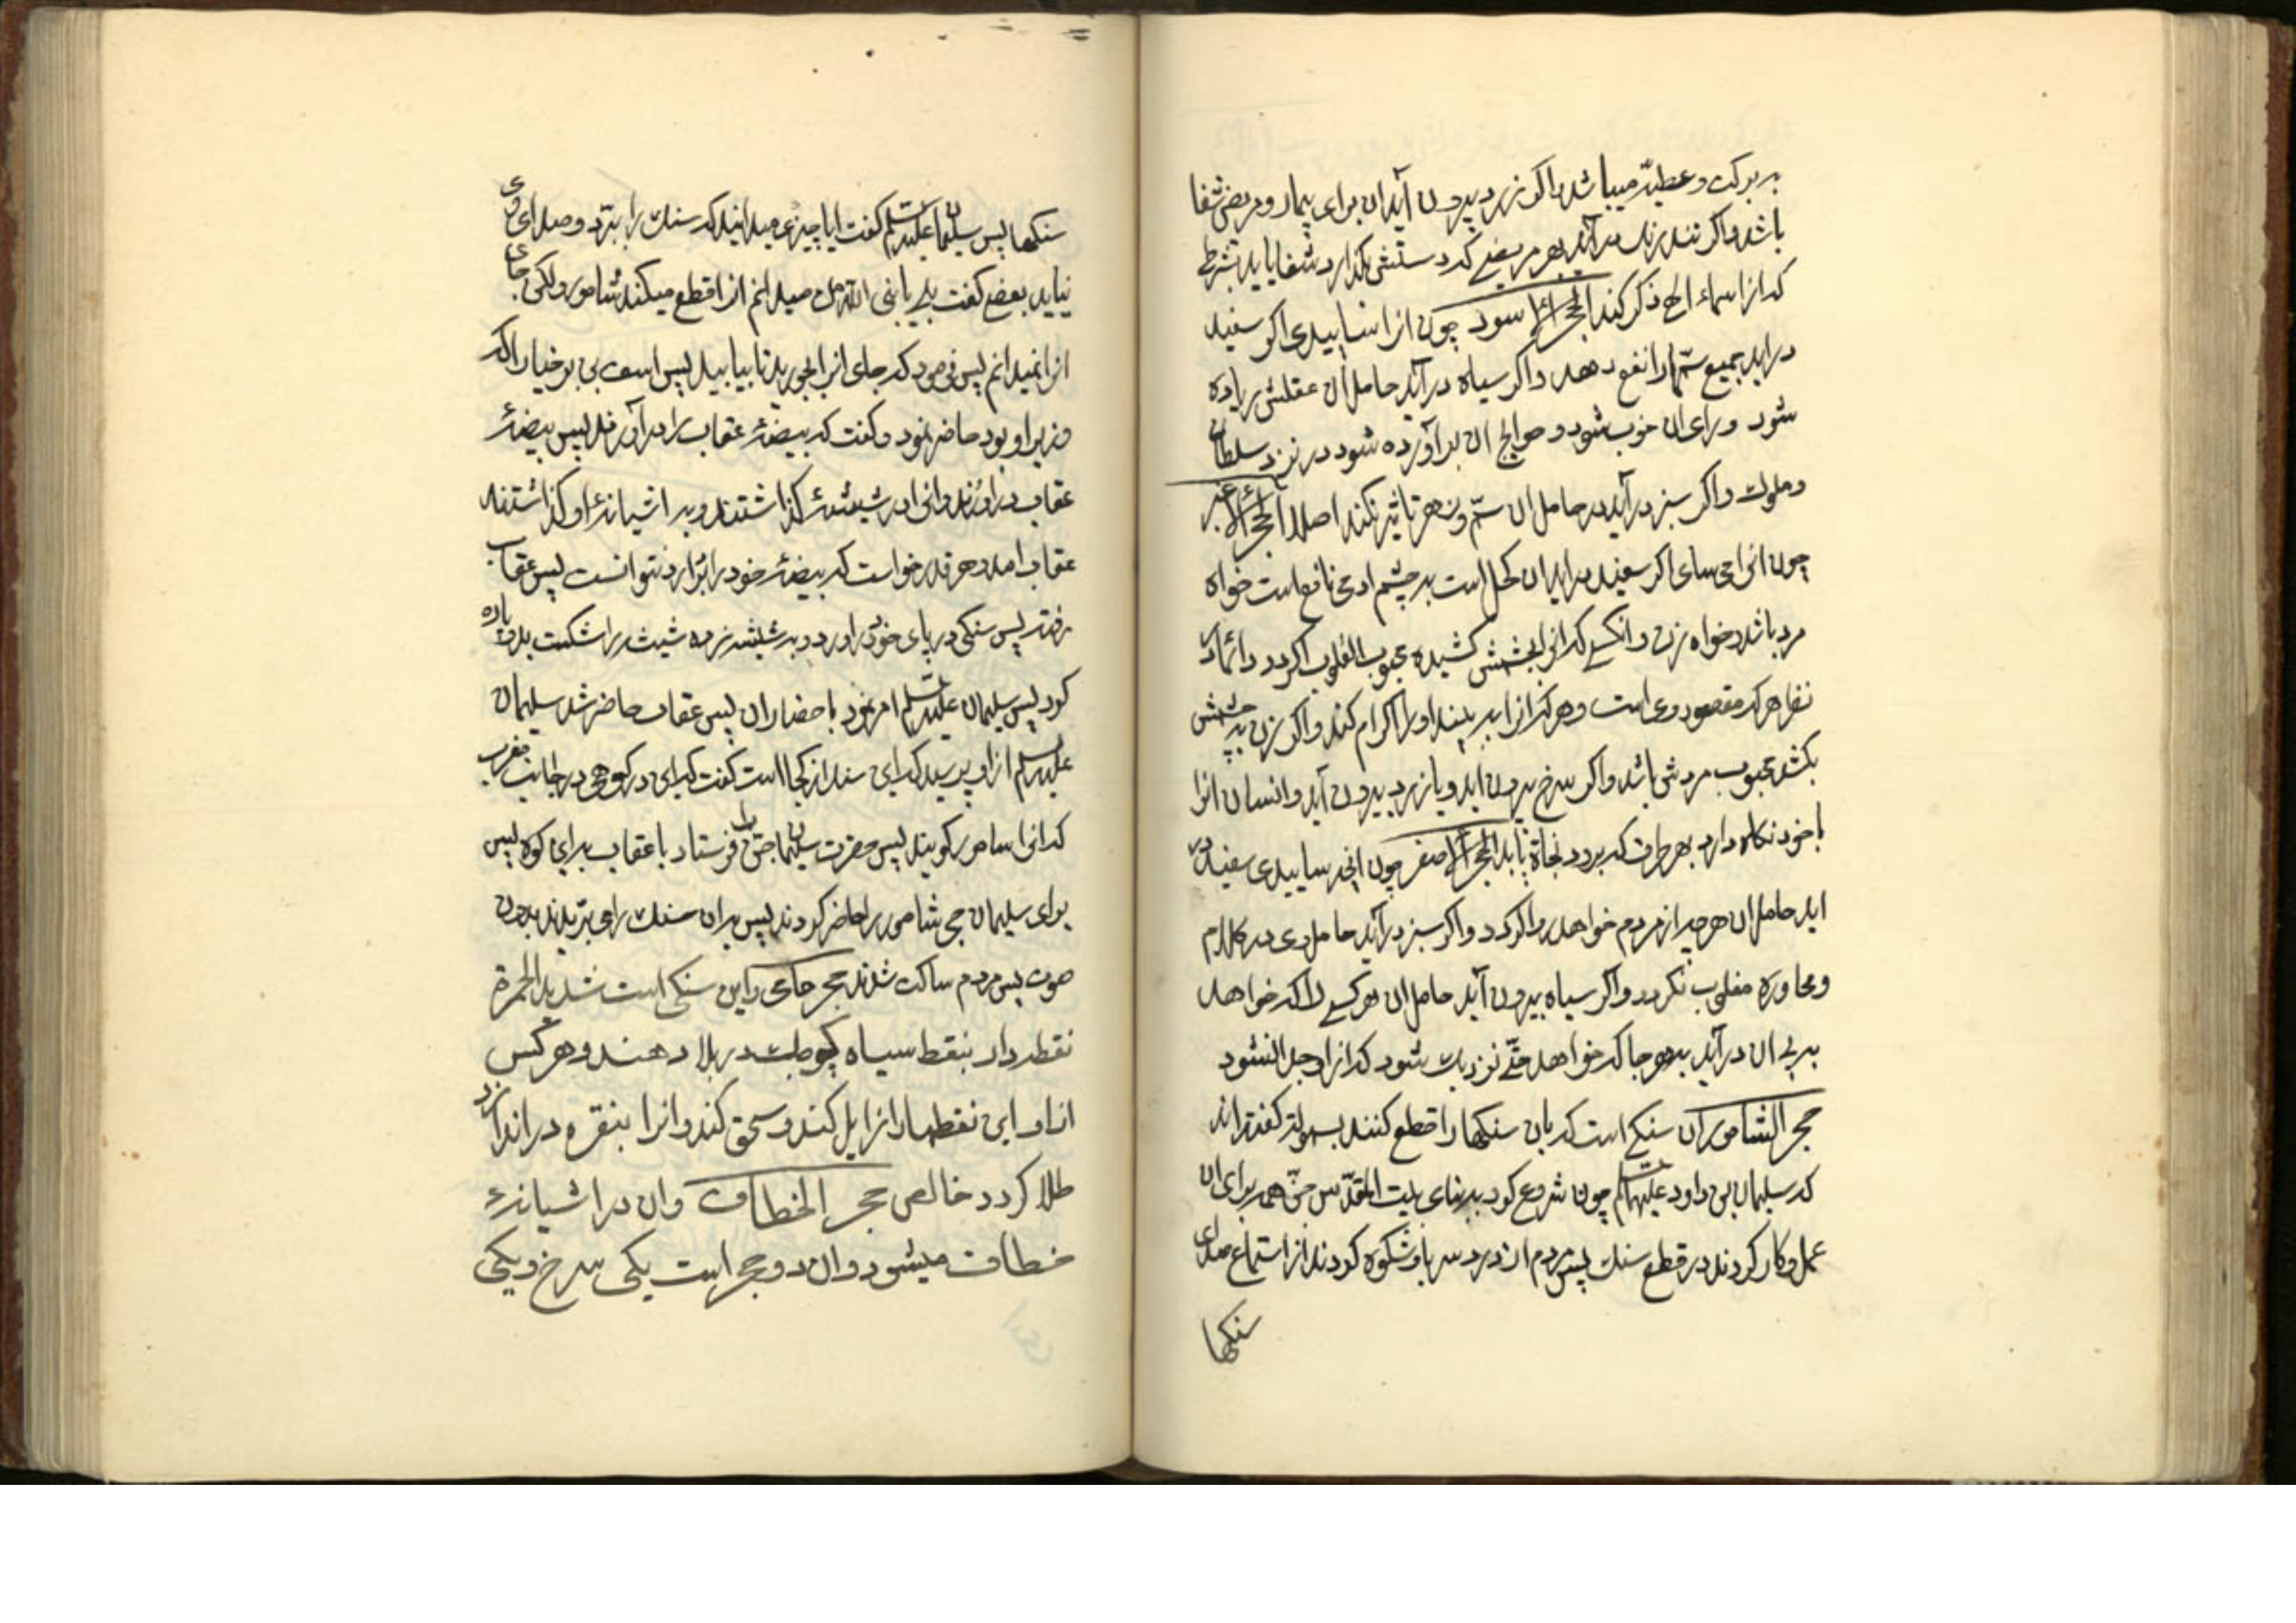 بر برکت و عطیّه میباشد واکر زرد بیرون آید ان برای بیمار و مریض شفا
باشد واکر تند رنك در آید بهر مریضی که دستش بکذارد شفا یابد بشرط
که از اسماء الهی ذکر کند الحجر الاسود چون انرا سابیدی اکر سفید
در اید بجمیع سمّها را نفع دهد واکر سیاه در آید حامل ان عقلش زیاده
شود و رای ان خوب شود و حوایج ان برآورده شود در نزد سلطان
و ملوك واکر سبز در آید در حامل ان سمّ و زهر تاثیر نکند اصلا الحجر الاغبر
چون انرا می سای اکر سفید در اید ان کحل است بر چشم ادمی نافع است خواه
مرد باشد خواه زن و انکسی که انرا بچشمش کشیده محبوب القلوب کردد دائما در
نظر هر که مقصود وی است و هر که انرا بر بیند او را اکرام کند واکر زن بر چشمش
بکشد محبوب مردش باشد واکر سرخ بیرون اید و یا زرد بیرون آید و انسان انرا
با خود نکاه دارد بهر طرف که برود نجاة یابد الحجر الاصفر چون انچه سابیدی سفید در
اید حامل ان هر چیز از مردم خواهد روا کردد واکر سبز در آید حامل وی در کلام
و محاوره مغلوب نکردد واکر سیاه بیرون آید حامل ان هر کسی را که خواهد
بر پی ان در آید بهر جا که خواهد حتّی نزدیك شود که از او جدا نشود
حجر الشامور ان سنکی است که بان سنکها را قطع کنند بسهولة کفته اند
که سلیمان بن داود علیهما السلام چون شروع کرد بر بنای بیت المقدّس جنّ همه برای ان
عمل و کار کردند در قطع سنك پس مردم از درد سر باو شکوه کردند از استماع صدای
سنکها
سنکها پس سلیمان علیه السلام کفت ایا چیزی میدانید که سنك را ببرّد و صدای وی
نیاید بعضی کفت بلی یا نبی الله من میدانم انرا قطع میکند شامور ولکن جای
انرا نمیدانم پس فرمود که جای انرا بجورید تا بیابید پس اسف بن برخیا را که
وزیر او بود حاضر نمود و کفت که بیضهٔ عقاب را در آورند پس بیضهٔ
عقاب در اوردند وانرا در شیشهٔ کذاشتند و بر اشیانهٔ او کذاشتند
عقاب امد و هر قدر خواست که بیضهٔ خود را بردارد نتوانست پس عقاب
رفته پس سنکی در پای خود در اورد و بر شیشه زده شیشه را شکست بدو پاره
کرد پس سلیمان علیه السلام امر نمود باحضار ان پس عقاب حاضر شد سلیمان
علیه السلام از او پرسید که این سنك از کجا است کفت که این در کوهی در جانب مغرب
که انرا سامور کویند پس حضرت سلیمان جنّ را فرستاد با عقاب برای کوه پس
برای سلیمان حجر شامور را حاضر کردند پس بدان سنك را می بریدند بدون
صوت پس مردم ساکت شدند حجر حاکی و این سنکی است شدید الحمرة
نقطه دار بنقط سیاه کوچك در بلاد هند و هر کس
انرا و این نقطها را زایل کند و سحق کند وانرا بنقره در اندازد
طلا کردد خالص حجر الخطاف وان در اشیانهٔ
خطاف میشود وان دو حجر است یکی سرخ و یکی